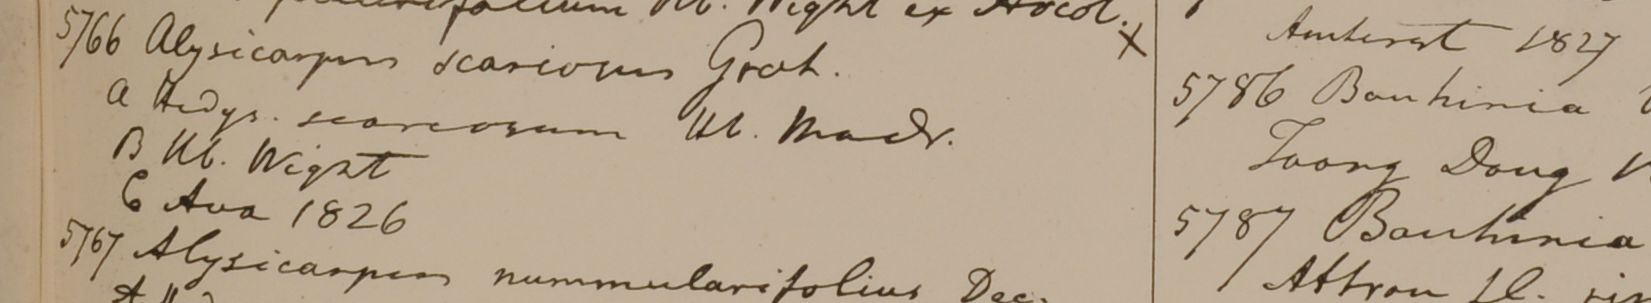 Hb. Wight ex Arcot.
5766 Alysicarpus scariosus Grah. X
A Hedys. scareosum Hb. Madr.
B Hb. Wight
C Ava 1826
5767 Alysicarpus nummularifolius Dec.
Amherst 1827
5786 Bauhinia
Taong Dong
5787 Bauhinia
Attran fl.